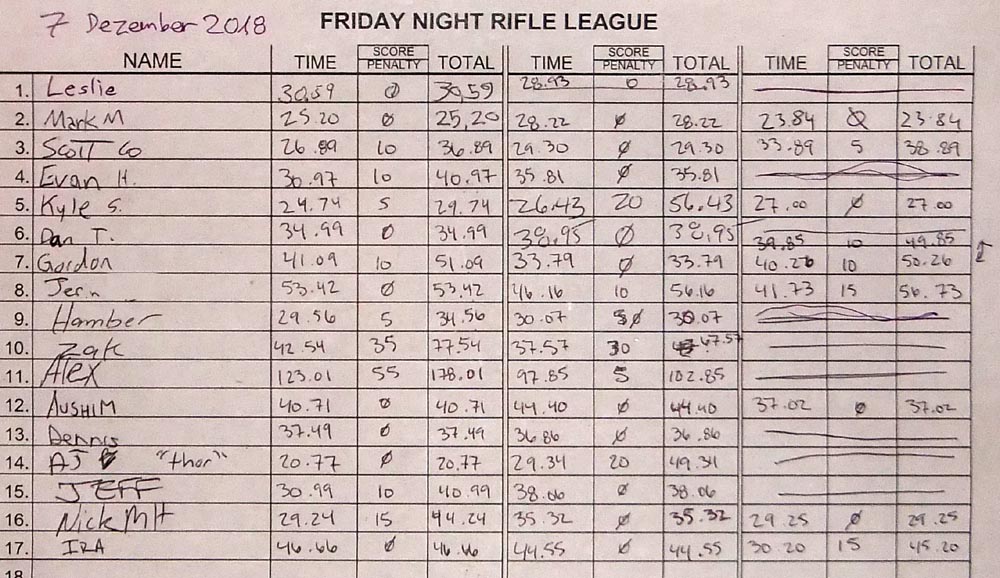 7 Dezember 2018 FRIDAY NIGHT RIFLE LEAGUE
NAME TIME SCORE PENALTY TOTAL TIME SCORE PENALTY TOTAL TIME SCORE PENALTY TOTAL
1. Leslie 30.59 0 30.59 28.93 0 28.93
2. Mark M 25.20 0 25,20 28.22 0 28.22 23.84 0 23.84
3. Scott Co 26.89 10 36.89 29.30 0 29.30 33.89 5 38.89
4. Evan H. 30.97 10 40.97 35.81 0 35.81
5. Kyle S. 24.74 5 29.74 26.43 20 56.43 27.00 0 27.00
6. Dan T. 34.99 0 34.99 38,95 0 38,95 39.85 10 49.85
7. Gordon 41.09 10 51.09 33.79 0 33.79 40.26 10 50.26
8. 53.42 0 53.42 46.16 10 56.16 41.73 15 56.73
9. Hamber 29.56 5 34.56 30.07 0 30.07
10. Zak 42.54 35 77.54 37.57 30 67.57
11. Alex 123.01 55 178.01 97.85 5 102.85
12. AUSHIM 40.71 0 40.71 44.40 0 44.40 37.02 0 37.02
13. Dennis 37.49 0 37.49 36.86 0 36.86
14. AJ "thor" 20.77 0 20.77 29.34 20 49.34
15. JEFF 30.99 10 40.99 38.06 0 38.06
16. Nick MH 29.24 15 44.24 35.32 0 35.32 29.25 0 29.25
17. IRA 46.66 0 46.66 44.55 0 44.55 30.20 15 45.20
18.